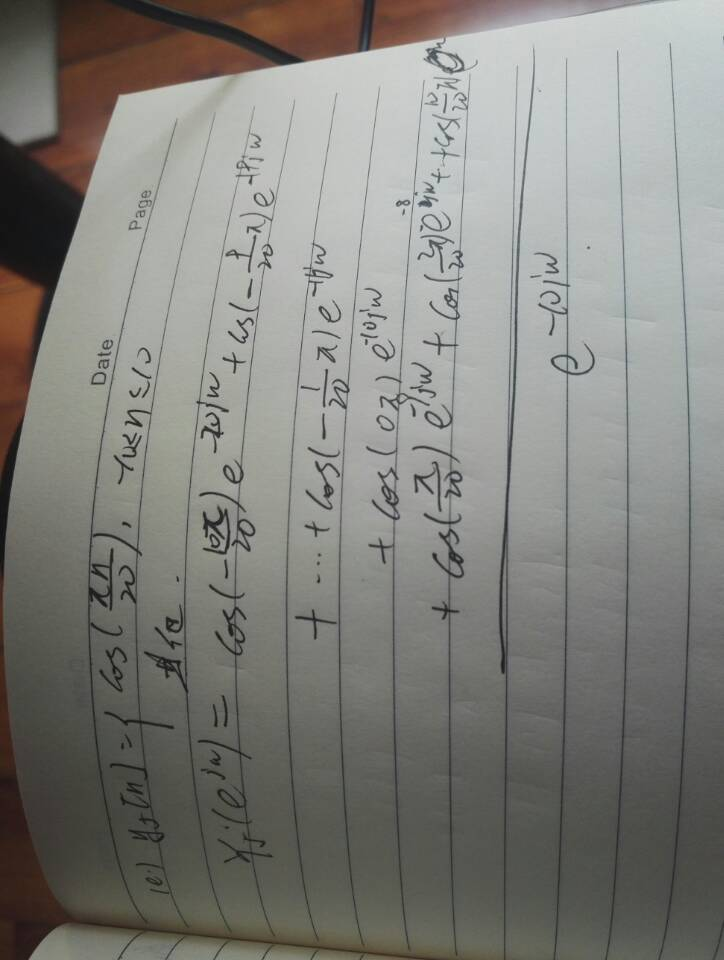 Date Page
(e) y₅[n] = { cos(πn/20), -10≤n≤10
其他.
Y₅(e^jw) = cos(-10π/20)e^-20jw + cos(-9/20 π)e^-19jw
+ ... + cos(-1/20 π)e^-11jw
+ cos(0π)e^-10jw
+ cos(π/20)e^-9jw + cos(2π/20)e^-8jw + + cos(10/20 π)
e^-10jw .